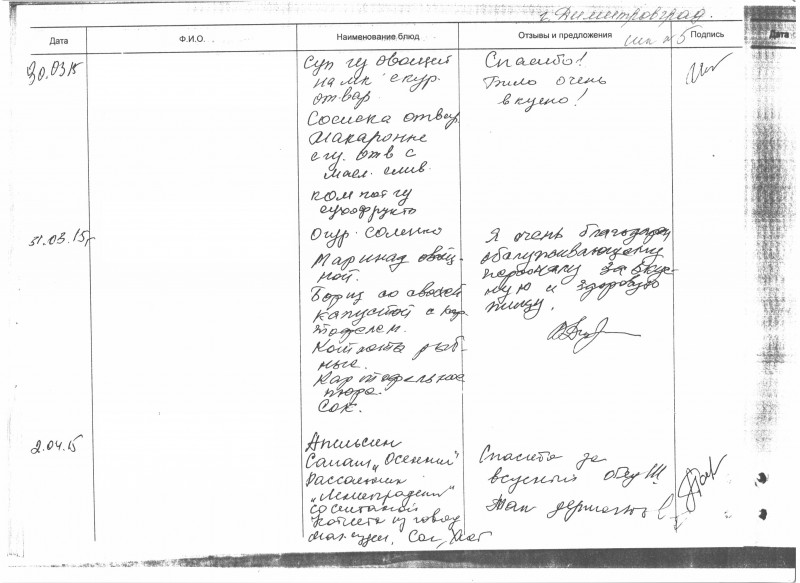 г. Димитровград.
Дата Ф.И.О. Наименование блюд Отзывы и предложения шк №5 Подпись Дата
30.03.15
Суп из овощей
на мк с кур.
отвар.
Сосиска отвар.
Макаронные
изд. отв с
масл. слив.
компот из
сухофрукто
Спасибо!
Было очень
вкусно!
31.03.15г
Огур. солёный
Маринад овощ-
ной.
Борщ со свежей
капустой с кар
тофелем.
Котлета рыб-
ные.
Картофельное
пюре.
Сок.
Я очень благодарен
обслуживающему
персоналу за вкус-
ную и здоровую
пищу.
2.04.15
Апельсин
Салат „Осенний"
Рассольник
„Ленинградский"
со сметаной
котлета из говяд
Сок, Хлеб
Спасибо за
вкусный обед!!!
Так держать!